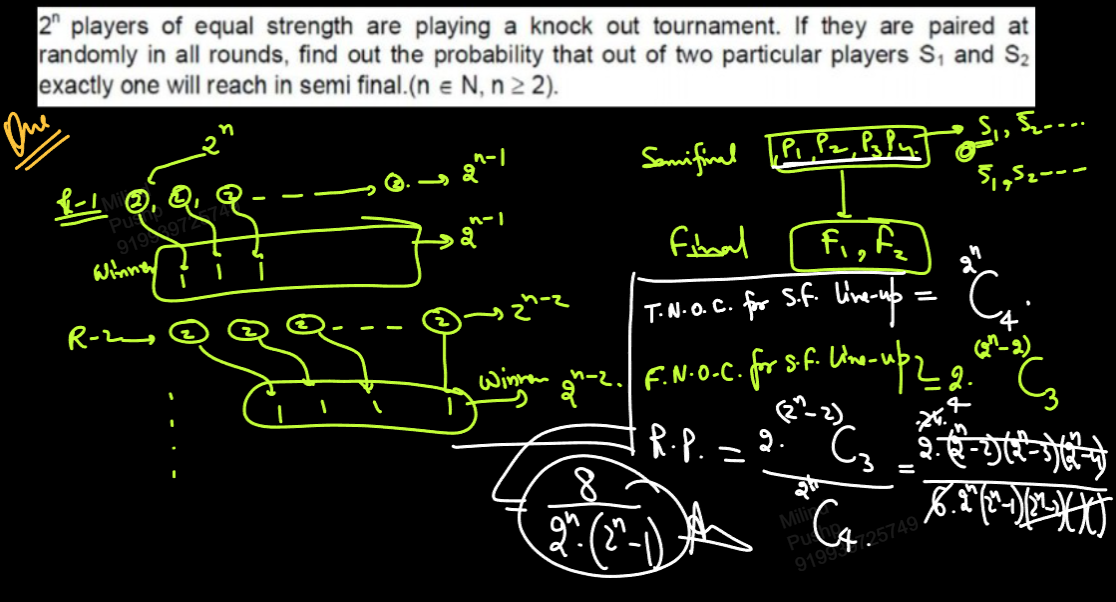 2ⁿ players of equal strength are playing a knock out tournament. If they are paired at
randomly in all rounds, find out the probability that out of two particular players S₁ and S₂
exactly one will reach in semi final.(n ∈ N, n ≥ 2).
Que
2ⁿ
R-1 2, 2, 2 - - - - → 2. → 2ⁿ⁻¹
Winner 1 1 1 → 2ⁿ⁻¹
R-2 → 2 2 2 - - - 2 → 2ⁿ⁻²
1 1 1 1 Winner → 2ⁿ⁻².
Semifinal P₁, P₂, P₃, P₄. → S₁, S̄₂ - - - -
S̄₁, S₂ - - -
Final F₁, F₂
T.N.O.C. for S.F. line-up = 2ⁿC₄.
F.N.O.C. for S.F. line-up = 2. (2ⁿ-2)C₃
R.P. = 2. (2ⁿ-2)C₃ / 2ⁿC₄. = 24. 4 2.(2ⁿ-2)(2ⁿ-3)(2ⁿ-4) / 6. 2ⁿ(2ⁿ-1)(2ⁿ-2)( )( )
= 8 / 2ⁿ.(2ⁿ-1) A
Milind
Pushp
919939725749
Milind
Pushp
919939725749